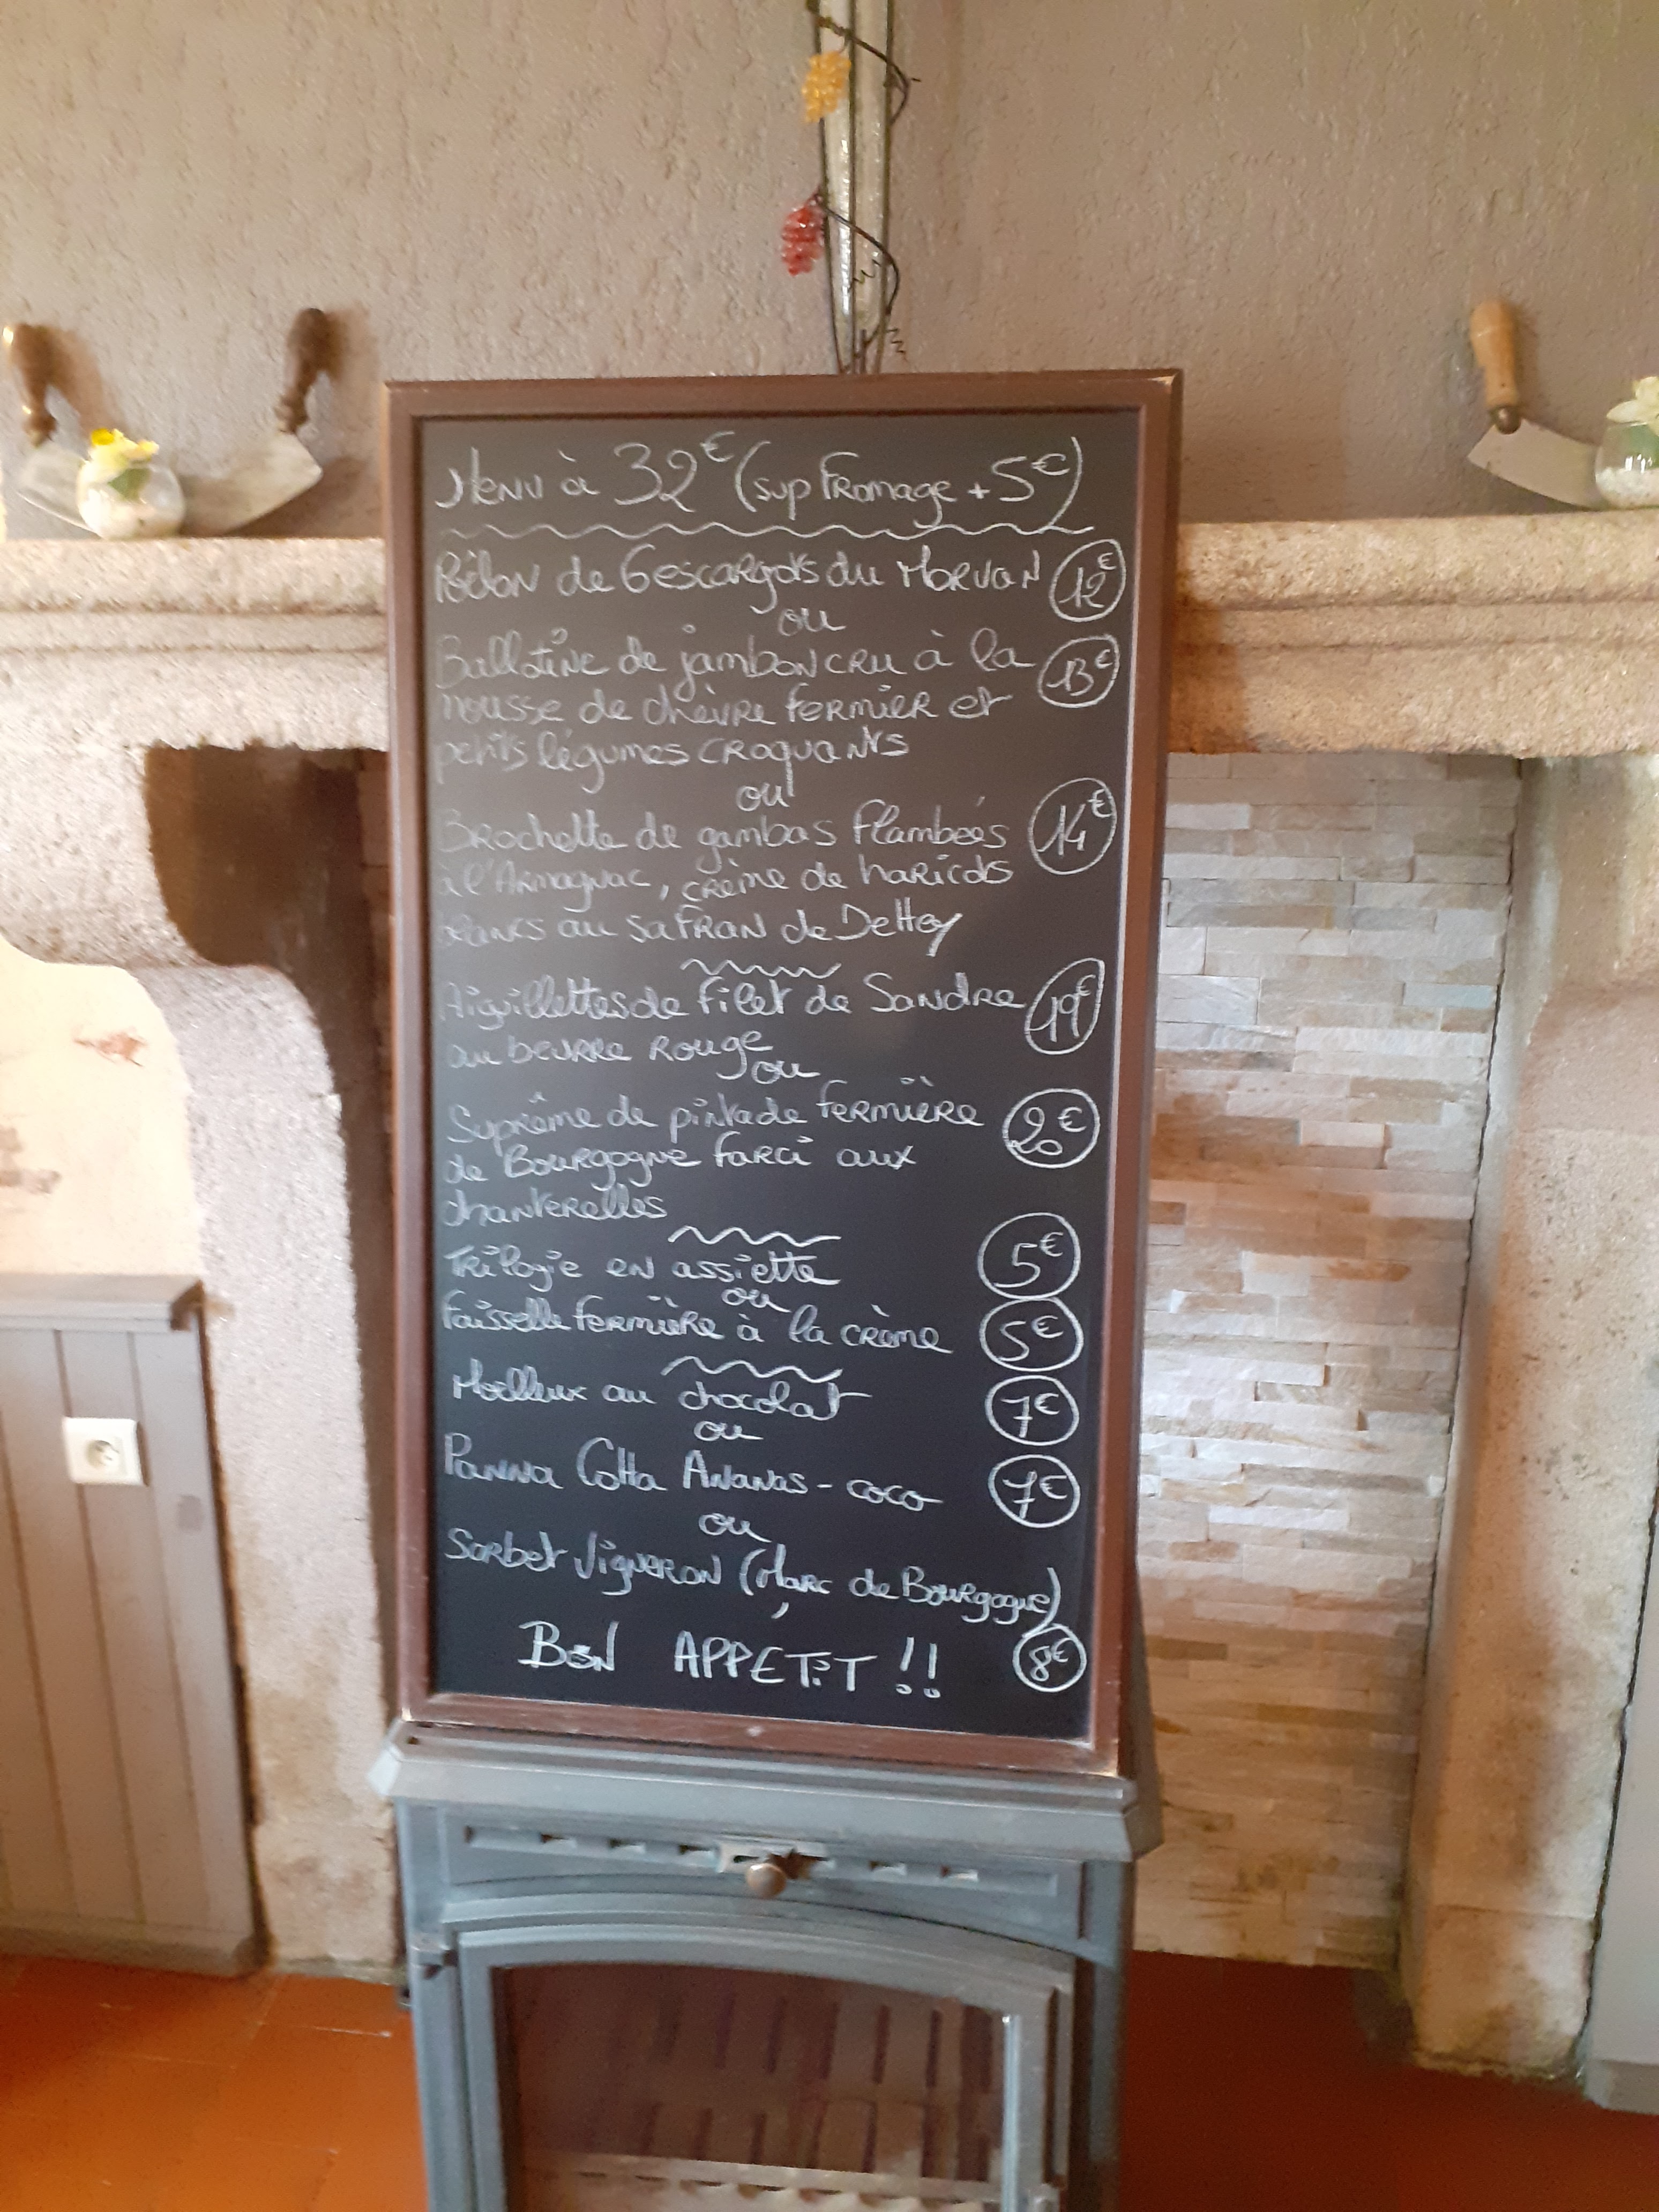 Menu à 32€ (sup Fromage + 5€)
Pôelon de 6 escargots du Morvan 12€
ou
Ballotine de jambon cru à la 13€
mousse de chèvre fermier et
petits légumes croquants
ou
Brochette de gambas flambées 14€
à l'Armagnac, crème de haricots
blancs au safran de Dettey
Aiguillettes de filet de Sandre 19€
au beurre rouge
ou
Suprême de pintade fermière 20€
de Bourgogne farci aux
chanterelles
Trilogie en assiette 5€
ou
Faisselle fermière à la crème 5€
Moelleux au chocolat 7€
ou
Panna Cotta Ananas - coco 7€
ou
Sorbet Vigneron (Marc de Bourgogne)
BON APPETIT !! 8€